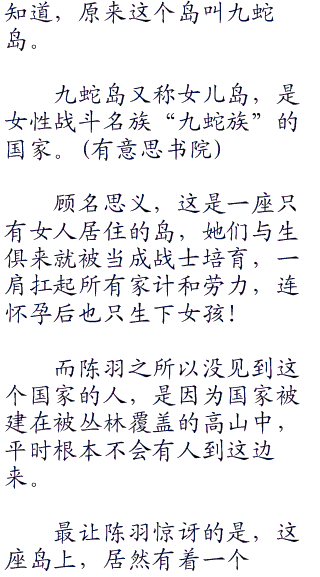 知道，原来这个岛叫九蛇
岛。
九蛇岛又称女儿岛，是
女性战斗名族“九蛇族”的
国家。(有意思书院)
顾名思义，这是一座只
有女人居住的岛，她们与生
俱来就被当成战士培育，一
肩扛起所有家计和劳力，连
怀孕后也只生下女孩！
而陈羽之所以没见到这
个国家的人，是因为国家被
建在被丛林覆盖的高山中，
平时根本不会有人到这边
来。
最让陈羽惊讶的是，这
座岛上，居然有着一个